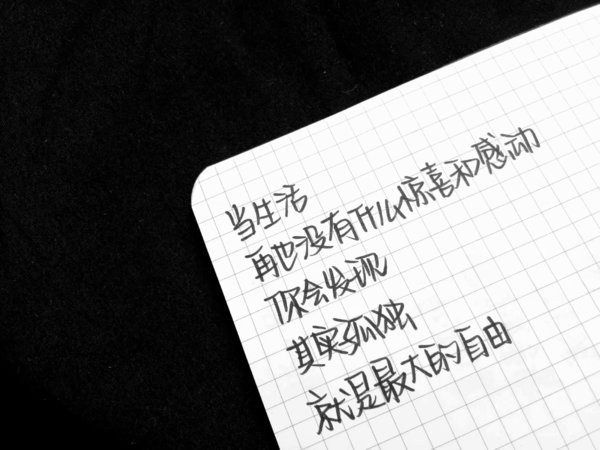 当生活
再也没有什么惊喜和感动
你会发现
其实孤独
就是最大的自由